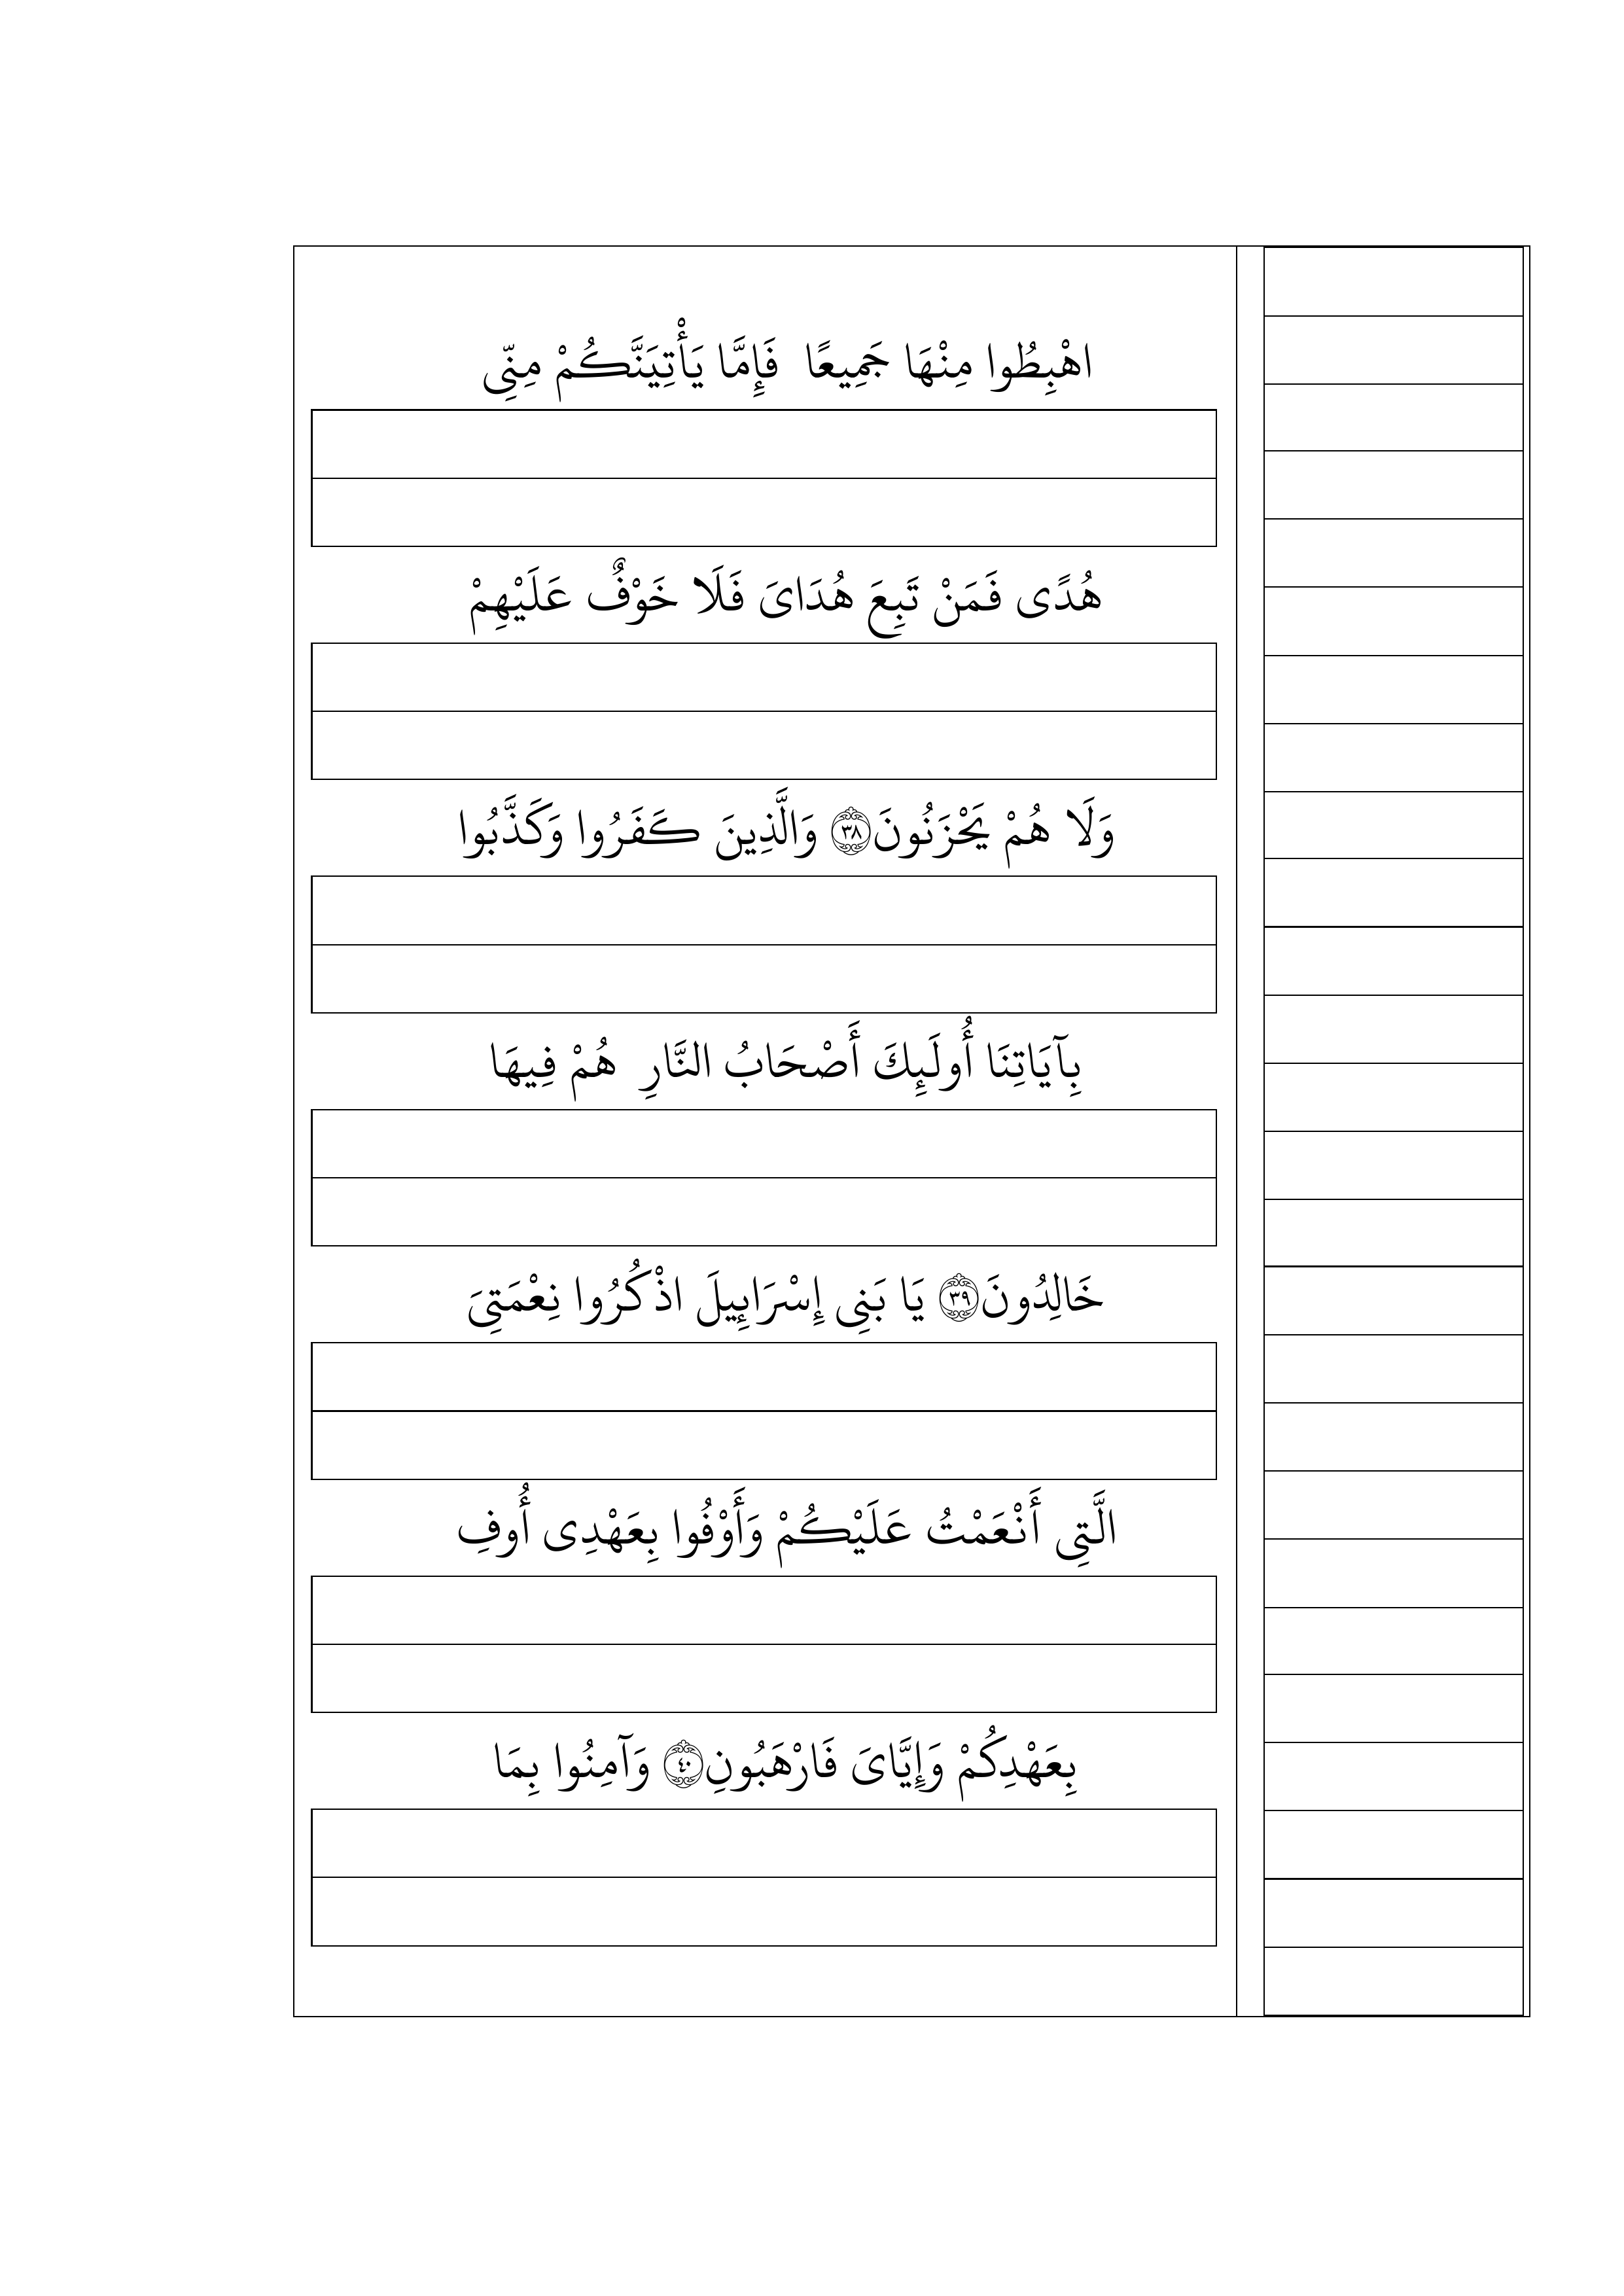 اهْبِطُوا مِنْهَا جَمِيعًا فَإِمَّا يَأْتِيَنَّكُمْ مِنِّى
هُدًى فَمَنْ تَبِعَ هُدَاىَ فَلَا خَوْفٌ عَلَيْهِمْ
وَلَا هُمْ يَحْزَنُونَ ٣٨ وَالَّذِينَ كَفَرُوا وَكَذَّبُوا
بِآيَاتِنَا أُولَئِكَ أَصْحَابُ النَّارِ هُمْ فِيهَا
خَالِدُونَ ٣٩ يَا بَنِى إِسْرَائِيلَ اذْكُرُوا نِعْمَتِىَ
الَّتِى أَنْعَمْتُ عَلَيْكُمْ وَأَوْفُوا بِعَهْدِى أُوفِ
بِعَهْدِكُمْ وَإِيَّاىَ فَارْهَبُونِ ٤٠ وَآمِنُوا بِمَا